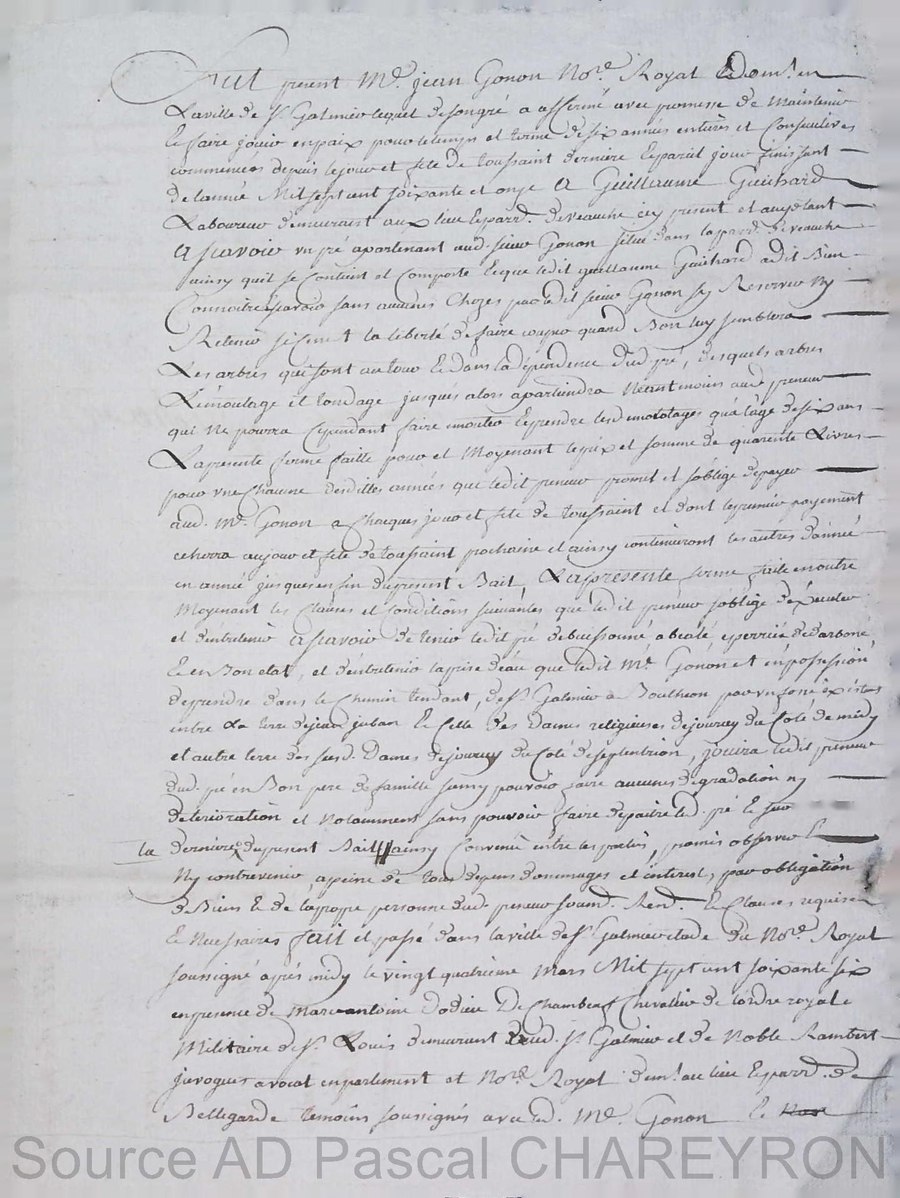 Fut present Me. jean Gonon Nore. Royal & demt. en
La ville de St. Galmier lequel de son gré a affermé avec promesse de Maintenir
& faire jouir en paix pour le temps et terme de six années entieres et Consecutives
commencées depuis le jour et fete de toussaint derniere & pareil jour finissant
de l'année Mil sept cent soixante et onze a Guillaume Guichard
Laboureur demeurant aux lieu & parr. de veauche icy present et acceptant
a scavoir un pré apartenant aud. sieur Gonon situé dans la parr. de veauche
ainsy quil se Contient et Comporte & que ledit guillaume Guichard a dit Bien
Connoitre & scavoir sans aucunes Chozes par ledit sieur Gonon sy Reserver ny
Retenir si ce n'est la liberté de faire couper quand Bon luy semblera
Les arbres qui sont autour & dans la dépendence dud. pré, desquels arbres
L'émoulage et tondage jusqu'es alors apartiendra Néantmoins aud. preneur
qui ne pourra Cependant faire & prendre lesd. qu'a l'age de six ans
La presente ferme faitte pour et Moyenant le prix et somme de quarente Livres
pour une Chacune desdittes années que ledit preneur promet et s'oblige de payer
aud. Me. Gonon a Chacques jour et fete de toussaint et dont le premier payement
echerra au jour et fete de toussaint prochaine et ainsy continueront les autres d'année
en année jusques en fin du present Bail, La presente ferme faite en outre
Moyenant les Clauses et Conditions suivantes que ledit preneur s'oblige d'éxécuter
et d'entretenir a scavoir de tenir ledit pré debuissonné
& en Bon etat, et d'entretenir la prise d'eau que ledit Me. Gonon est en possession
de prendre dans le Chemin tendant de St. Galmier à Boutheon par un fossé éxistant
entre La terre de jean juban & Celle des Dames religieuses de jourcey du Coté de midy
et autre terre des susd. Dames de jourcey du Coté de septentrion, jouira ledit preneur
dud. pré en Bon pere de famille sans y pouvoir faire aucunes dégradation ny
déterioration et Notamment sans pouvoir faire depaitre led. pré
la derniere du present Bail ainsy Convenu entre les parties, promis observer &
Ny contrevenir, a peine de tous depens dommages et interets, par obligation
de Biens & de la propre personne dud. preneur soumd. Rend. & Clauses requises
& Necessaires fait et passé dans la ville de St. Galmier etude du Nore. Royal
soussigné aprés midy le vingt quatrieme Mars Mil sept cent soixante six
en presence de Marc antoine Dodieu De Chambeuf Chevallier de l'ordre royal &
Militaire de St. Louis demeurant aud. St. Galmier et de Noble Rambert
javogues avocat en parlement et Nore. Royal demt. au lieu & parr. de
Bellegarde temoins soussignés avec led. Me. Gonon &
Source AD Pascal CHAREYRON